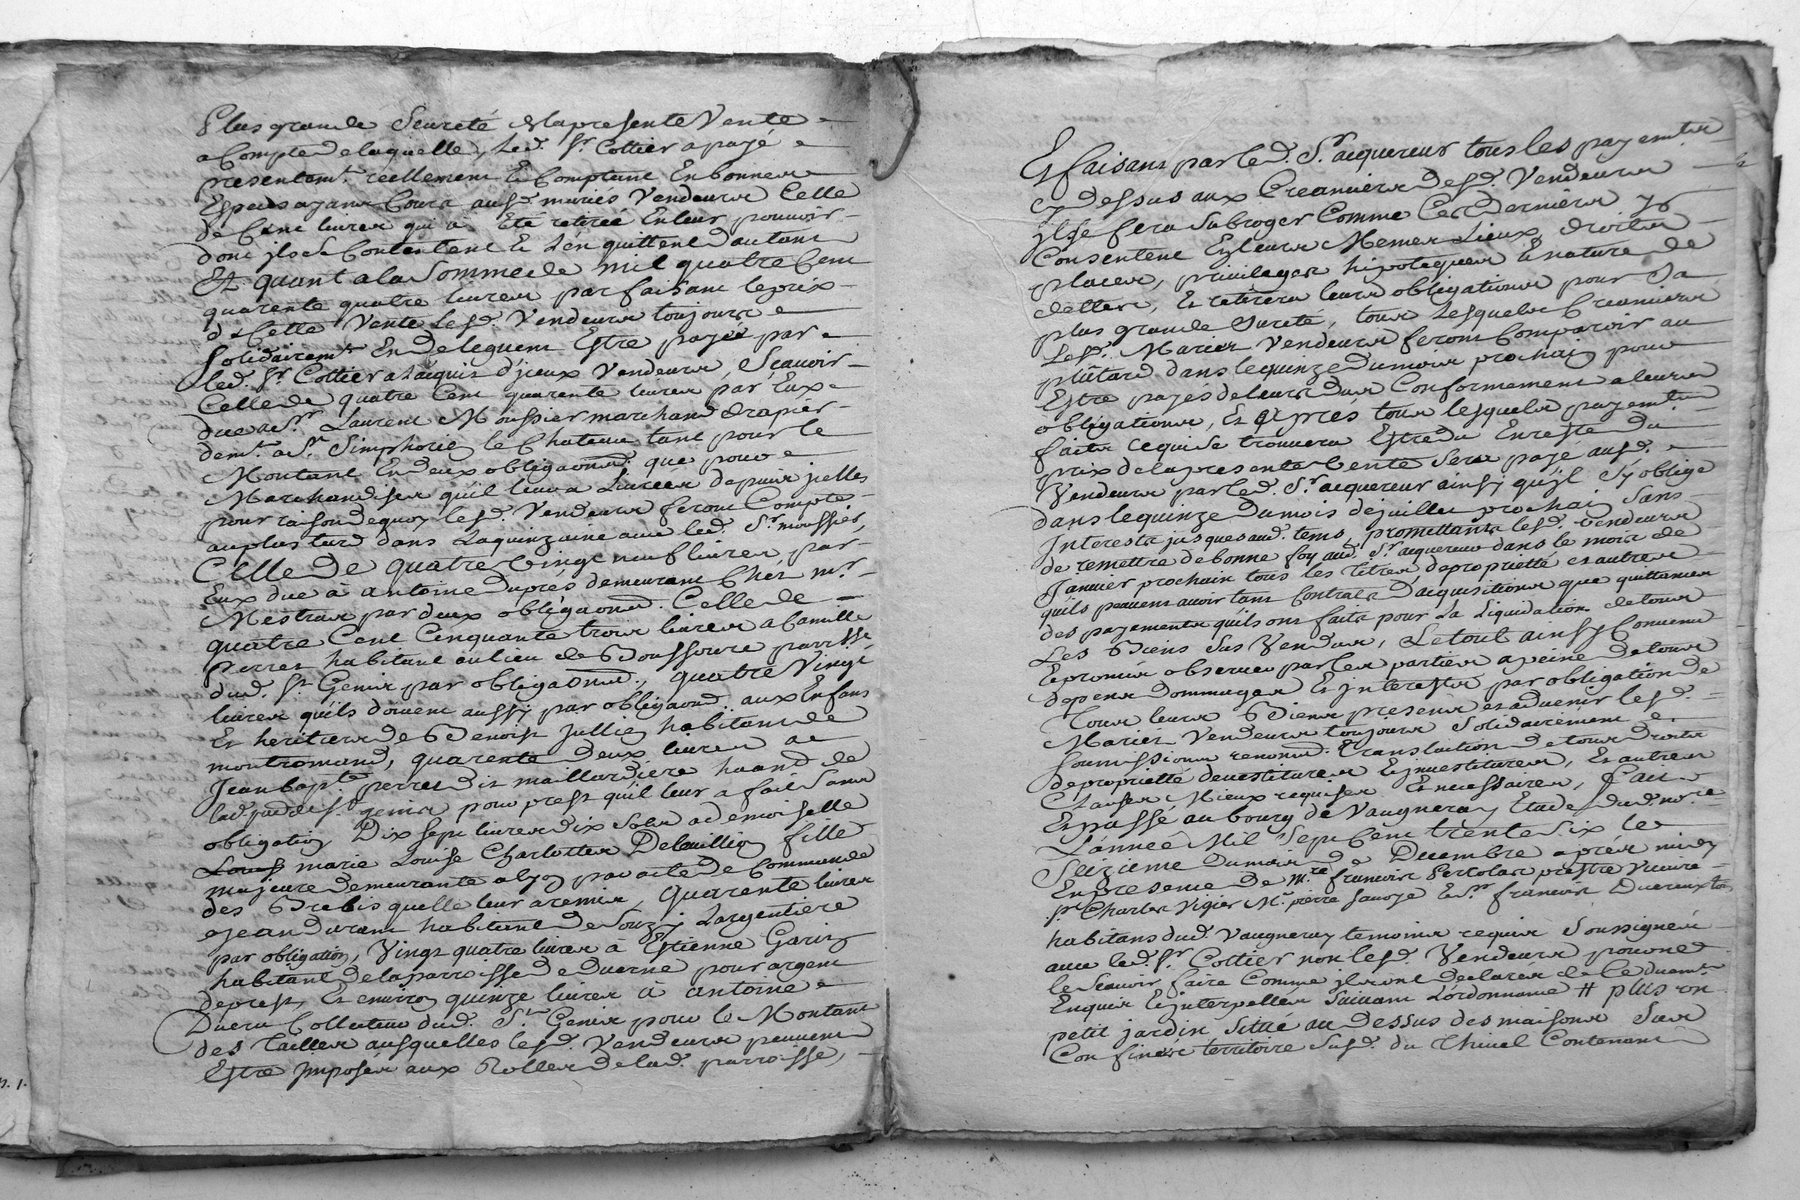 Plus grande Seureté de la presente Vente
a Compte de laquelle, Led. Sr. Cottier a payé
presentemt. reellement & Comptant En bonnes
Especes ayans Cours ausd. mariés Vendeurs Celle
de Cent livres qui a Eté retirée En leur pouvoir
dont ils se Contentent Et L'en quittent d'autant
Et quant a la Somme de mil quatre Cent
quarente quatre livres parfaisant le prix
d'Icelle Vente Lesd. Vendeurs toujours
Solidairemt. En deleguent Estre payée par
led. Sr. Cottier a l'acquis d'jceux Vendeurs, Scavoir
Celle de quatre Cent quarente livres par Eux
due a Sr. Laurent Moussier marchand drapier
demt. a St. Simphorien le Chateau tant pour le
Montant En deux obligaons. que pour
Marchandises qu'il leur a Livrées depuis jcelles
pour raison de quoy lesd. Vendeurs feront Compte
au plus tard dans La quinzaine avec led. Sr. moussier,
Celle de quatre Vingt neuf livres par
Eux due à antoine Duprés demeurant Chés mr.
Mestras par deux obligaons. Celle de
quatre Cent Cinquante trois livres a Camille
perret habitant au lieu de Boussoure parrisse
dud. St. Genis par obligaons., quatre Vingt
livres qu'ils doivent aussy par obligaons. aux Enfans
Et heritiers de Benoist Jullien habitans de
montromand, quarente deux livres a
Jean bapte. perret dit maillardiere haand de
lad. parr. de St. genis pour prest qu'il leur a fait Sans
obligation Dix Sept livres dix Sols a demoiselle
Louise marie Louise Charlotte Delouillion fille
majeure demeurante a lyon par acte de Commande
des Brebis quelle leur a remis, quarente livres
a Jean durant habitant de Souzy Largentiere
par obligation, Vingt quatre livres à Estienne Garin
habitant de la parroisse de duerne pour argent
de prest, Et environ quinze livres à antoine
Ducru Collecteur dud. St. Genis pour le Montant
des Tailles ausquelles lesd. Vendeurs peuvent
Estre jmposés aux Rolles de lad. parroisse,
Et faisant par led. Sr. acquereur tous les payemts.
cy dessus aux Creanciers desd. Vendeurs
jl se fera Subroger Comme Ces derniers y
Consentent En leurs Memes Lieux, droits
places, privileges hipoteques & nature de
dettes, Et retirera leurs obligations pour Sa
plus grande Sureté, tous Lesquels Creanciers
Lesd. Mariés Vendeurs feront Comparoir au
plûtard dans le quinze du mois prochain pour
Estre payés de leurs dus Conformement a leurs
obligations, Et apres tous lesquels payemts.
faits ce qui se trouvera Estre du En reste du
prix de la presente Vente Sera payé ausd.
Vendeurs par led. Sr. acquereur ainsy qu'jl s'y oblige
dans le quinze du mois de juillet prochain Sans
Interests jusques aud. tems, promettants lesd. Vendeurs
de remettre de bonne foy aud. Sr. acquereur dans le mois de
Janvier prochain tous les titres de proprietté et autres
qu'ils peuvent avoir tant Contrats d'acquisitions que quittances
des payements qu'ils ont faits pour La Liquidation de tous
Les Biens Sus Vendus, Le tout ainsy Convenu
Et promis observer par les parties a peine de tous
depens dommages Et jnterests par obligation de
Tous leurs Biens presens et advenir lesd.
Mariés Vendeurs toujours Solidairement
Soumissions renond. Translation de tous droits
de proprietté devestitures Et jnvestitures, Et autres
Clauses Mieux requises Et necessaires, fait
Et passé au bourg de Vaugneray Etude dud. nore
L'année Mil Sept Cent trente Six le
Seizieme du mois de Decembre aprés midy
En presence de Mre. francois pertolas prestre Vicaire
Sr. Charles Vigier Mr. pierre Savoye & Sr. francois Ducreux tous
habitans dud. Vaugneray temoins requis Soussignés
avec led. Sr. Cottier non lesd. Vendeurs pour ne
le Scavoir faire Comme jls ont declarés de Ce duemt.
Enquis & jnterpellés Suivant L'ordonnance # plus un
petit jardin Sittué au dessus des maisons Sus
Confinées territoire Susd. du Thivel Contenant